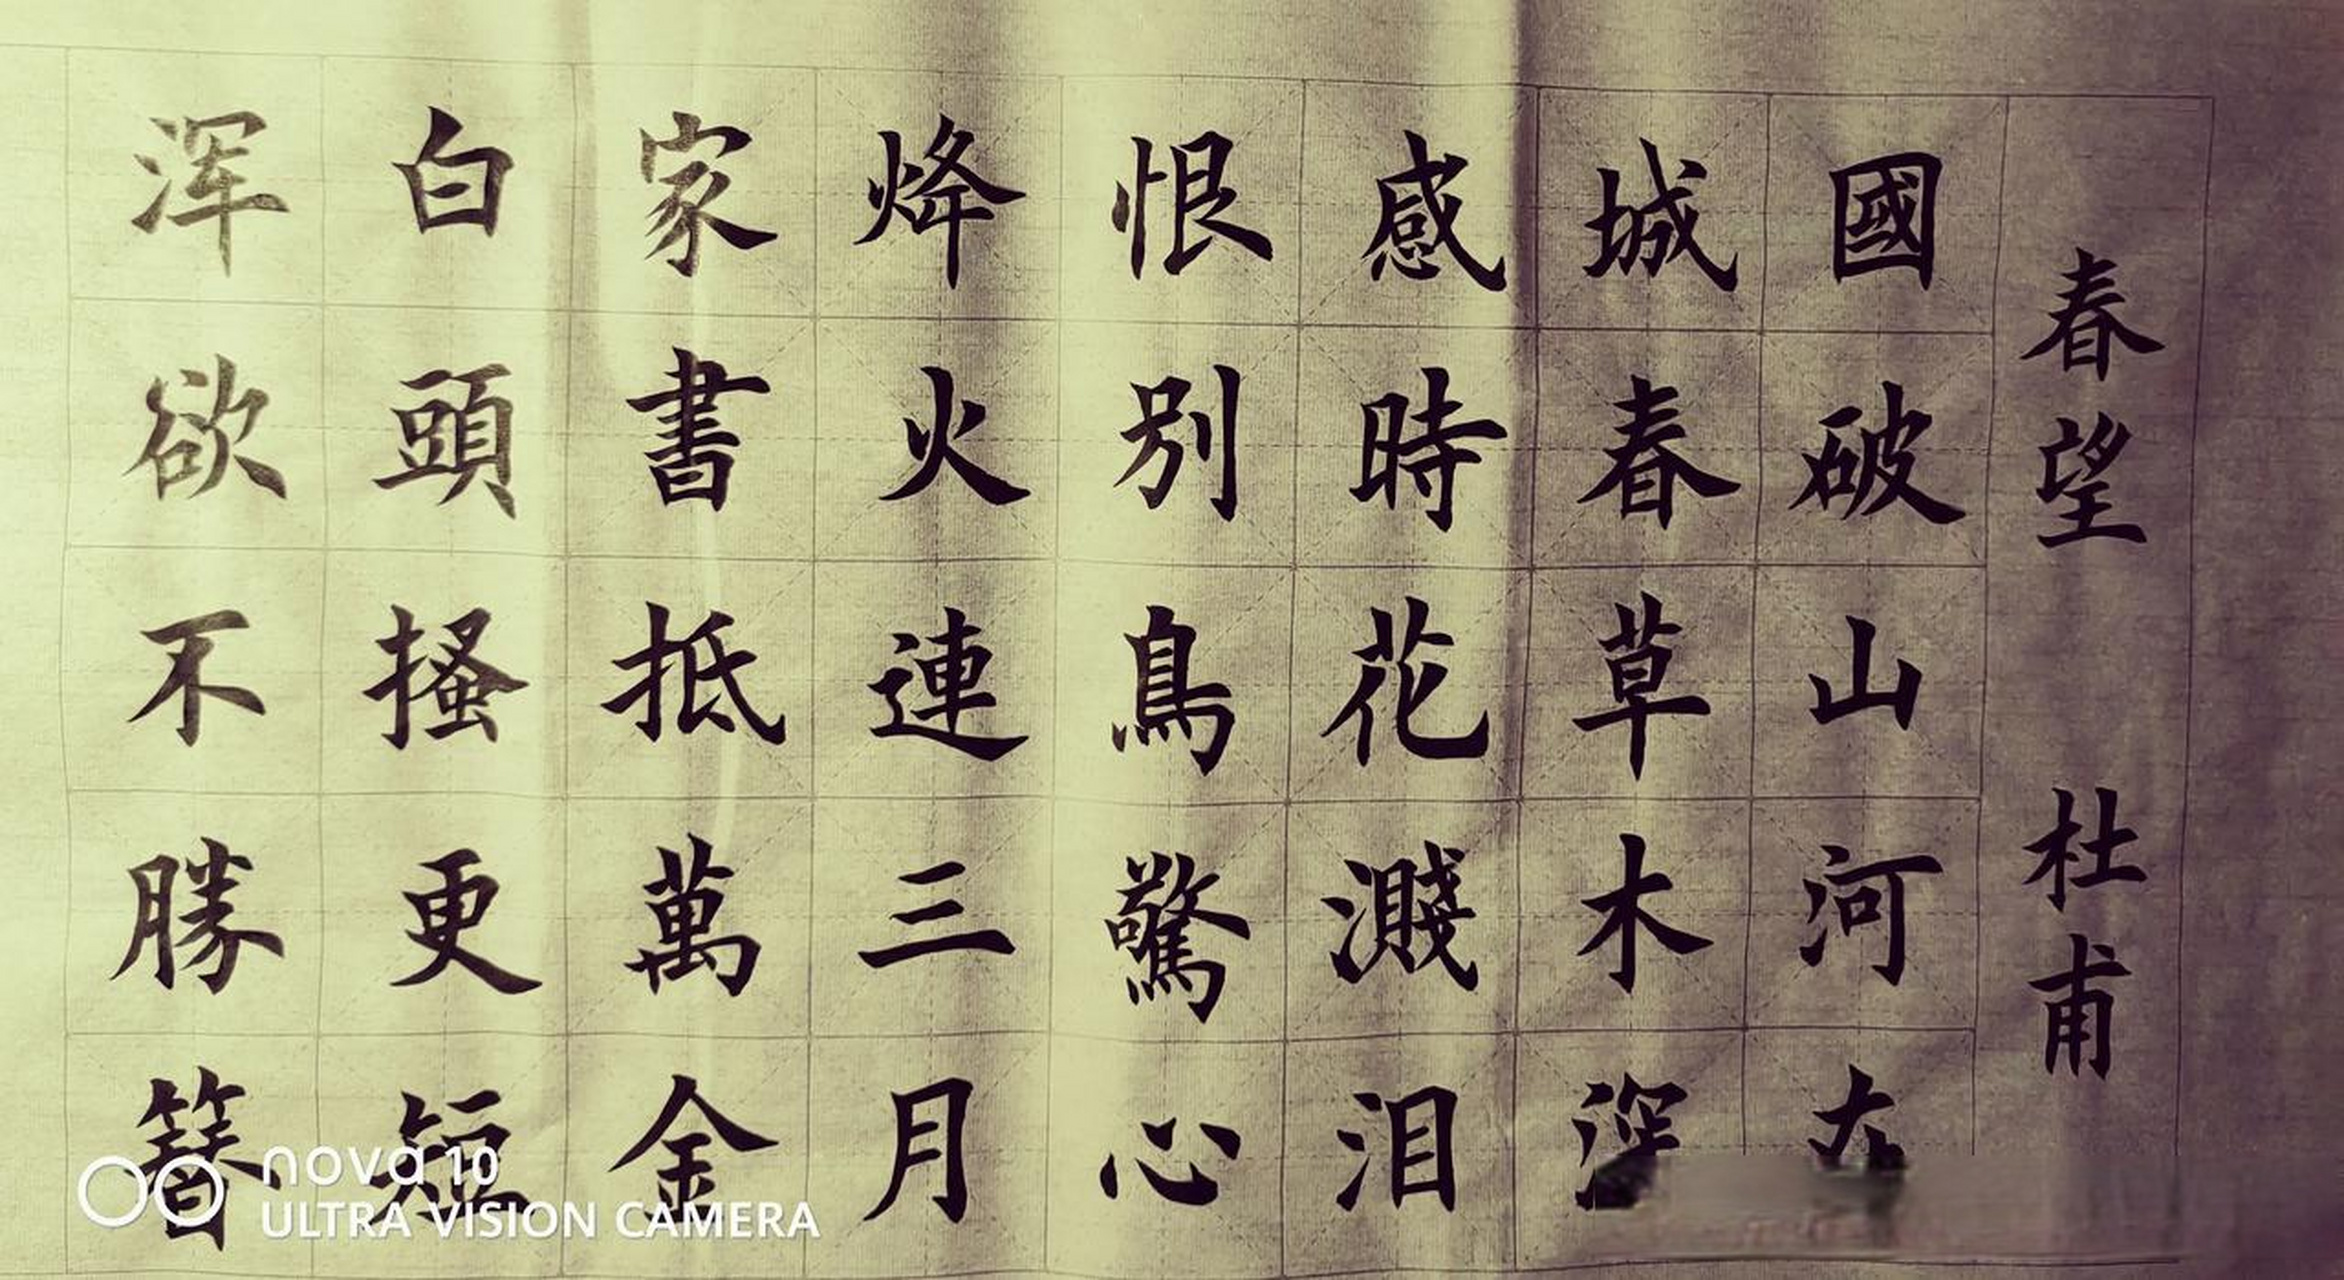 春望 杜甫
國破山河在
城春草木深
感時花濺泪
恨別鳥驚心
烽火連三月
家書抵萬金
白頭搔更短
浑欲不勝簪
nova 10
ULTRA VISION CAMERA